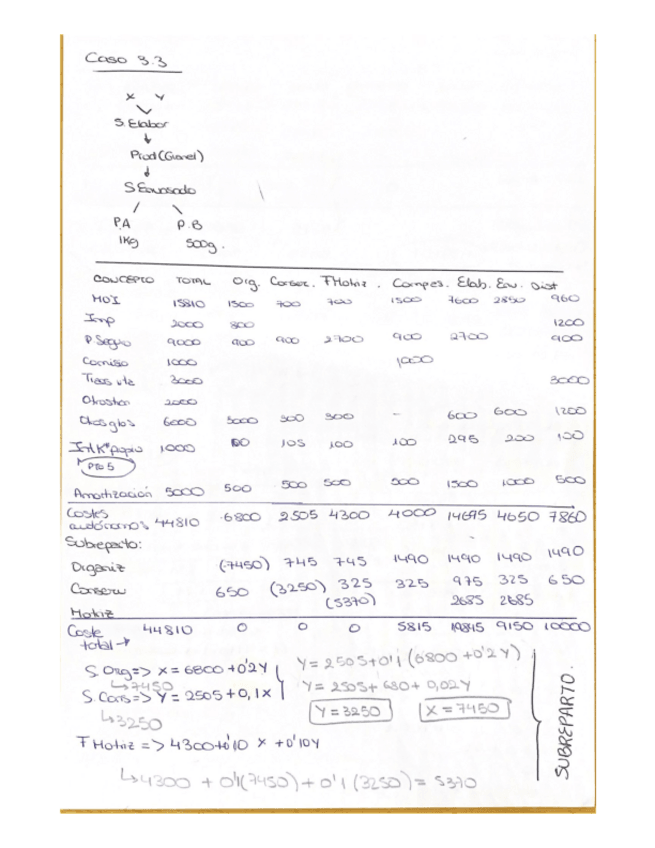 Caso 3.3
X Y
S. Elabor
Prod (Granel)
S Envasado
P.A P.B
1Kg 500g.
CONCEPTO TOTAL Org. Conser. F Motriz. Compras. Elab. Env. Dist
MOI 15810 1500 700 700 1500 7600 2850 960
Imp 2000 800 1200
P. Seguro 9000 900 900 2700 900 2700 900
Comiso 1000 1000
Trans vta 3000 3000
2000
Otros gtos 6000 3000 300 300 - 600 600 1200
Int. K propio 1000 100 105 100 100 295 200 100
Pto 5
Amortización 5000 500 500 500 500 1500 1000 500
Costes
autónomos 44810 6800 2505 4300 4000 14695 4650 7860
Subreparto:
Organiz (-7450) 745 745 1490 1490 1490 1490
Conserv 650 (3250) 325 325 975 325 650
Motriz (5370) 2685 2685
Coste
total → 44810 0 0 0 5815 19845 9150 10000
S. Org => X = 6800 + 0'2Y
↳ 7450
S. Cons => Y = 2505 + 0,1X
↳ 3250
Y = 2505 + 0'1 (6800 + 0'2Y)
Y = 2505 + 680 + 0,02Y
Y = 3250 X = 7450
F Motriz => 4300 + 0'10 X + 0'10Y
↳ 4300 + 0'1(7450) + 0'1 (3250) = 5370
SUBREPARTO.